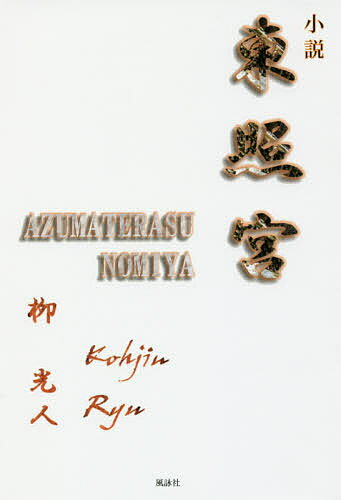 小説
東照宮
AZUMATERASU
NOMIYA
柳光人
Kohjin
Ryu
風詠社